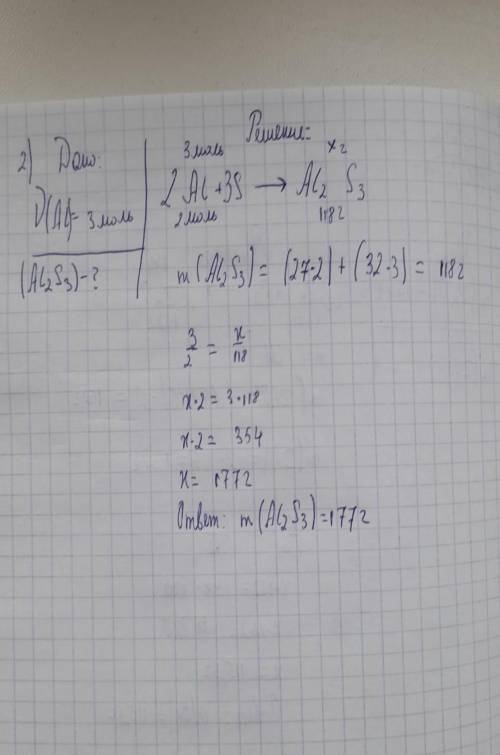 2) Дано:
ν(Al)= 3 моль
(Al₂S₃)-?
Решение:
3 моль x г
2 Al + 3S → Al₂ S₃
2 моль 118 г
m (Al₂S₃) = (27·2) + (32·3) = 118 г
3/2 = x/118
x·2 = 3·118
x·2 = 354
x = 177 г
Ответ: m (Al₂S₃) = 177 г